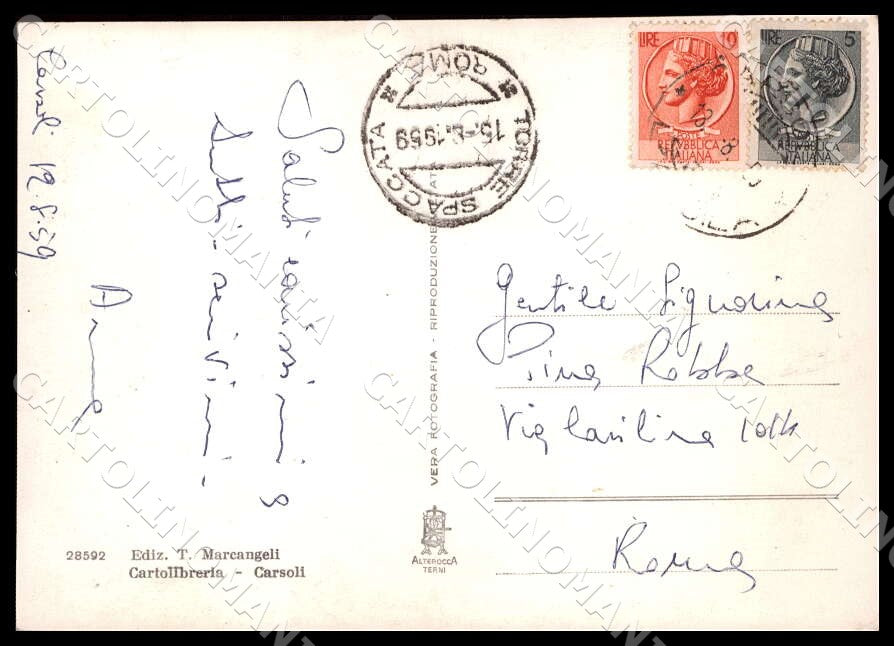 Carsoli 12.8.59
Saluti carissimi e
tutti
Anna
TORRE SPACCATA * ROMA *
15-8.1959
LIRE 10
POSTE
REPVBBLICA
ITALIANA
LIRE 5
REPVBBLICA
ITALIANA
Gentile Signorina
Pina Robba
Via Casilina
Roma
VERA FOTOGRAFIA - RIPRODUZIONE
ALTEROCCA
TERNI
28592 Ediz. T. Marcangeli
Cartolibreria - Carsoli
CARTOLINOMANIA